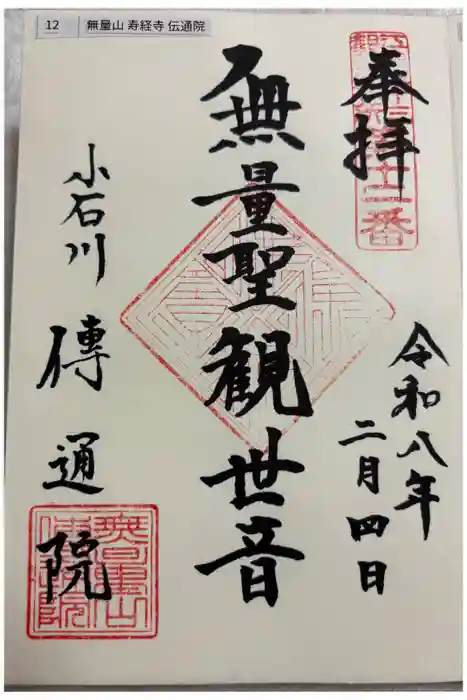 12 無量山 寿経寺 伝通院
奉拝
令和八年
二月四日
無量聖観世音
小石川 傳通院
無量山
傳通院